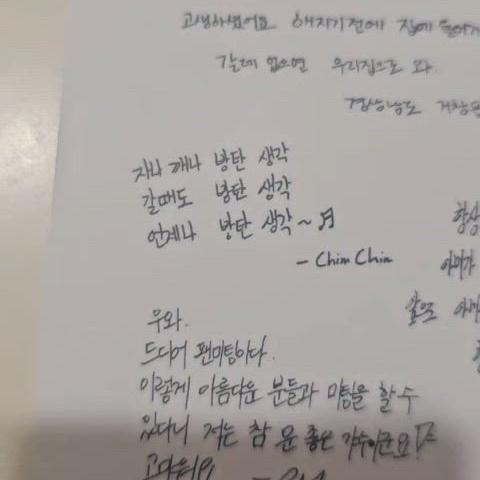 고생하셨어요 해지기전에 집에 들어가
갈데 없으면 우리집으로 와.
경상남도 거창군
자나 깨나 방탄 생각
갈때도 방탄 생각
언제나 방탄 생각~♬
- Chim Chim
항상
아미가
우와.
드디어 팬미팅이다.
이렇게 아름다운 분들과 미팅을 할 수
있다니 저는 참 운 좋은 가수이군요!
고마워요